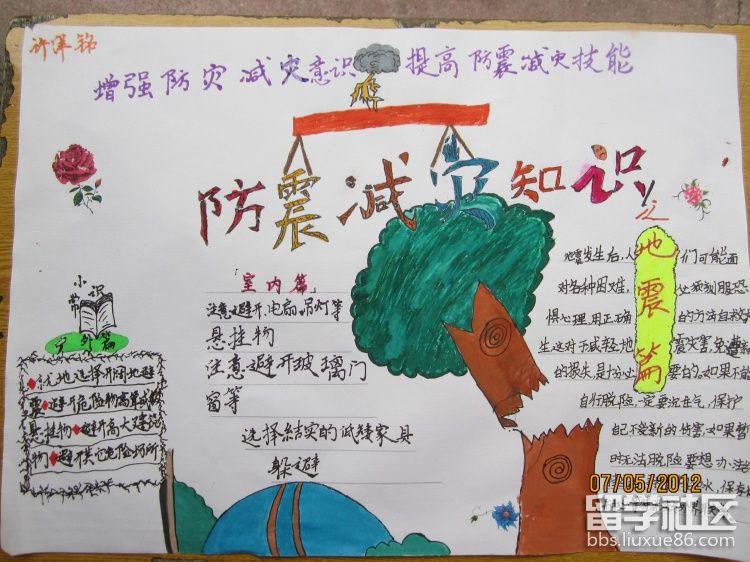 许泽铭
增强防灾减灾意识 提高防震减灾技能
防震减灾知识
之
地震篇
小常识
室外篇
就地选择开阔地避
震避开危险物高耸或
悬挂物避开高大建筑
物避开其它危险场所
室内篇
注意避开电扇、吊灯等
悬挂物
注意避开玻璃门
窗等
选择结实的低矮家具
躲避
地震发生后,人们可能面
对各种困难,必须克服恐
惧心理,用正确的方法自救
生这对于减轻地震灾害,免
的损失,是十分必要的。如果不能
自行脱险,一定要沉住气,保护
自己不受新的伤害,如果暂
时无法脱险要想办法
水,保
07/05/2012
留学社区
bbs.liuxue86.com